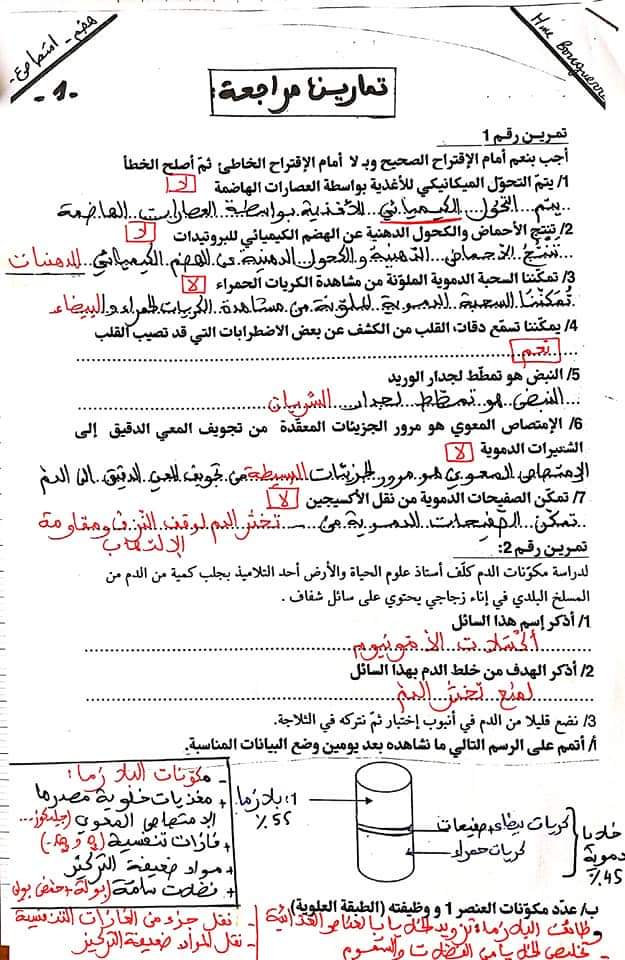 هضم - امتصاص -
- 1 -
Mme Bouguerra
تمارين مراجعة:
تمرين رقم 1
أجب بنعم أمام الإقتراح الصحيح وبـ لا أمام الإقتراح الخاطئ ثمّ أصلح الخطأ
1/ يتمّ التحوّل الميكانيكي للأغذية بواسطة العصارات الهاضمة لا
يتم التحول الكيميائي للأغذية بواسطة العصارات الهاضمة
2/ تنتج الأحماض والكحول الدهنية عن الهضم الكيميائي للبروتيدات لا
تنتج الأحماض الذهبية والكحول الدهنية عن الهضم الكيميائي للدهنيات
3/ تمكّننا السحبة الدموية الملوّنة من مشاهدة الكريات الحمراء لا
تمكننا السحبة الدموية الملونة من مشاهدة الكريات الحمراء والبيضاء
4/ يمكّننا تسمّع دقات القلب من الكشف عن بعض الاضطرابات التي قد تصيب القلب
نعم
5/ النبض هو تمطّط لجدار الوريد
النبض هو تمطط لجدار الشريان
6/ الإمتصاص المعوي هو مرور الجزيئات المعقّدة من تجويف المعي الدقيق إلى
الشعيرات الدموية لا
الإمتصاص المعوي هو مرور الجزيئات البسيطة من تجويف المعي الدقيق الى الدم
7/ تمكّن الصفيحات الدموية من نقل الأكسيجين لا
تمكن الصفيحات الدموية من تخثر الدم لوقف النزف ومقاومة
الإلتهاب
تمرين رقم 2:
لدراسة مكوّنات الدم كلّف أستاذ علوم الحياة والأرض أحد التلاميذ بجلب كمية من الدم من
المسلخ البلدي في إناء زجاجي يحتوي على سائل شفاف .
1/ أذكر إسم هذا السائل
أكسلات الأمونيوم
2/ أذكر الهدف من خلط الدم بهذا السائل
لمنع تخثر الدم
3/ نضع قليلا من الدم في أنبوب إختبار ثمّ نتركه في الثلاجة.
أ/ أتمم على الرسم التالي ما نشاهده بعد يومين وضع البيانات المناسبة.
1: بلازما
55٪
كريات بيضاء+صفيحات
كريات حمراء
خلايا
دموية
45٪
- مكونات البلازما:
+ مغذيات خلوية مصدرها
الإمتصاص المعوي (جليكوز...
+ غازات تنفسية
+ مواد ضعيفة التركيز
+ فضلات سامة (بولة + حمض بولي
ب/ عدّد مكوّنات العنصر 1 و وظيفته (الطبقة العلوية)
وظائف البلازما: تزويد الخلايا بالعناصر الغذائية
تخليص الخلايا من الفضلات والسموم
- نقل جزء من الغازات التنفسية
- نقل المواد ضعيفة التركيز